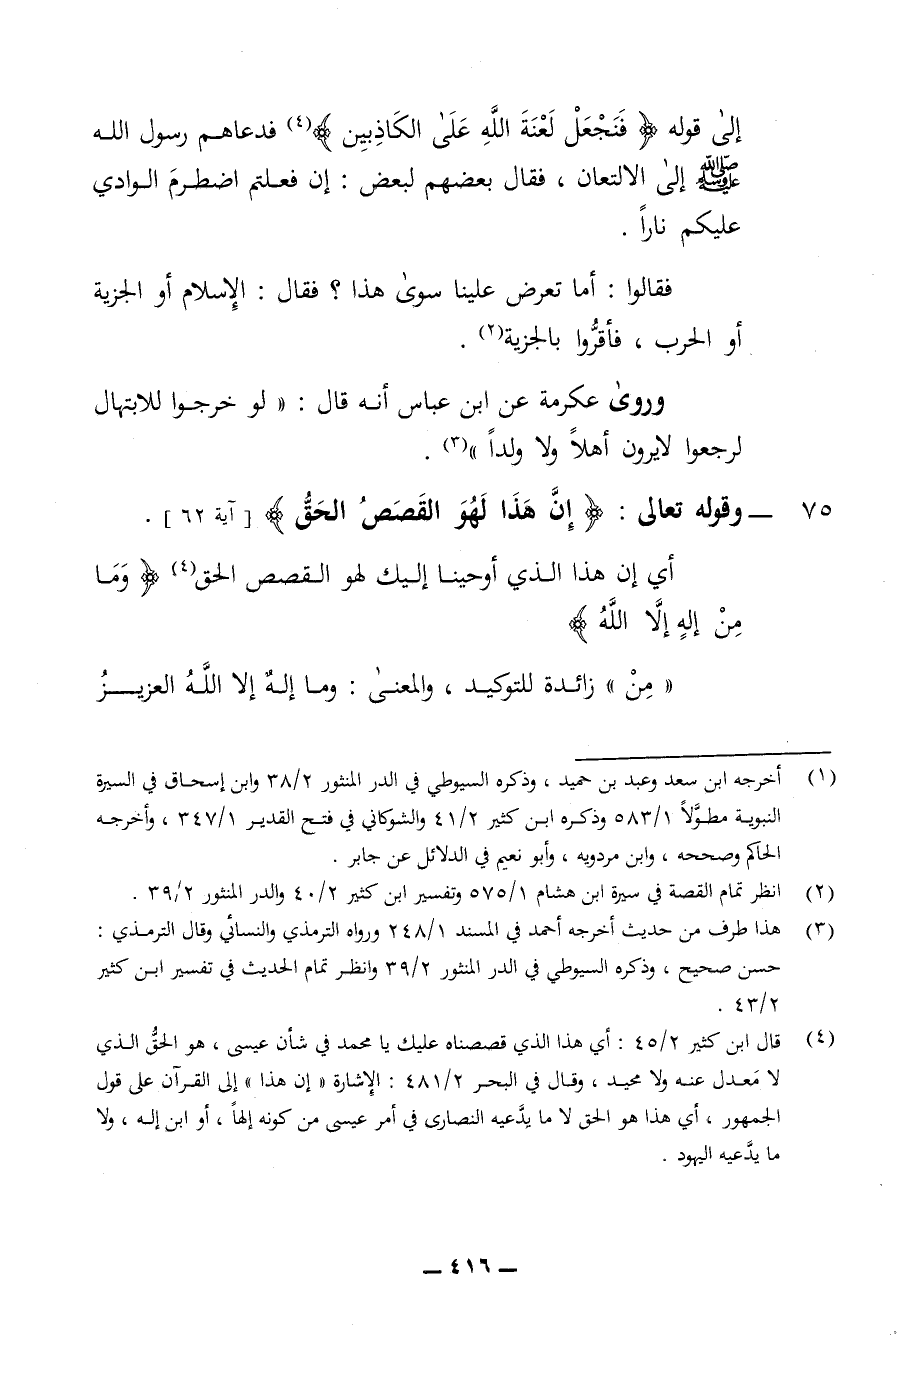 إلىٰ قوله ﴿ فَنَجْعَلْ لَعْنَةَ اللَّهِ عَلَىٰ الكَاذِبِين ﴾(٤) فدعاهم رسول الله
ﷺ إلىٰ الالتعان ، فقال بعضهم لبعض : إن فعلتم اضطرمَ الوادي
عليكم ناراً .
فقالوا : أما تعرض علينا سوىٰ هذا ؟ فقال : الإسلام أو الجزية
أو الحرب ، فأقرُّوا بالجزية(٢) .
وروىٰ عكرمة عن ابن عباس أنه قال : « لو خرجوا للابتهال
لرجعوا لايرون أهلاً ولا ولداً »(٣) .
٧٥ ـ وقوله تعالى : ﴿ إِنَّ هَذَا لَهُوَ القَصَصُ الحَقُّ ﴾ [ آية ٦٢ ] .
أي إن هذا الذي أوحينا إليك لهو القصص الحق(٤) ﴿ وَمَا
مِنْ إلهٍ إلَّا اللَّهُ ﴾
« مِنْ » زائدة للتوكيد ، والمعنىٰ : وما إلهٌ إلا اللَّهُ العزيزُ
(١) أخرجه ابن سعد وعبد بن حميد ، وذكره السيوطي في الدر المنثور ٣٨/٢ وابن إسحاق في السيرة
النبوية مطوَّلاً ٥٨٣/١ وذكره ابن كثير ٤١/٢ والشوكاني في فتح القدير ٣٤٧/١ ، وأخرجه
الحاكم وصححه ، وابن مردويه ، وأبو نعيم في الدلائل عن جابر .
(٢) انظر تمام القصة في سيرة ابن هشام ٥٧٥/١ وتفسير ابن كثير ٤٠/٢ والدر المنثور ٣٩/٢ .
(٣) هذا طرف من حديث أخرجه أحمد في المسند ٢٤٨/١ ورواه الترمذي والنسائي وقال الترمذي :
حسن صحيح ، وذكره السيوطي في الدر المنثور ٣٩/٢ وانظر تمام الحديث في تفسير ابن كثير
٤٣/٢ .
(٤) قال ابن كثير ٤٥/٢ : أي هذا الذي قصصناه عليك يا محمد في شأن عيسى ، هو الحقُّ الذي
لا مَعدل عنه ولا محيد ، وقال في البحر ٤٨١/٢ : الإشارة « إن هذا » إلى القرآن على قول
الجمهور ، أي هذا هو الحق لا ما يدَّعيه النصارى في أمر عيسى من كونه إلهاً ، أو ابن إله ، ولا
ما يدَّعيه اليهود .
ـ ٤١٦ ـ